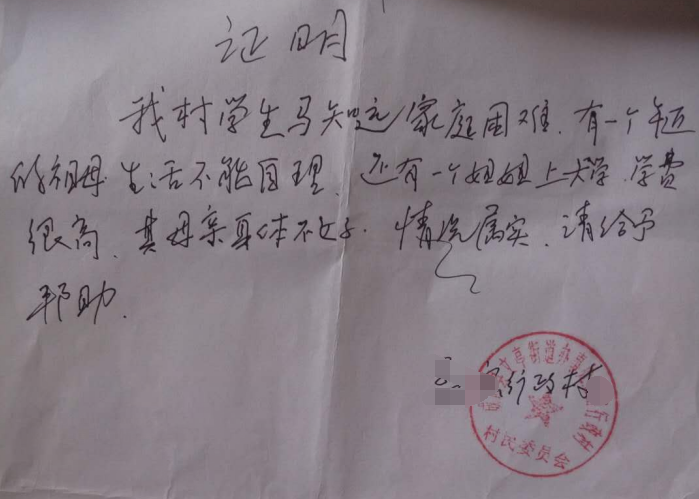 证明
我村学生马知远家庭困难、有一个年近
的祖母生活不能自理、还有一个姐姐上大学、学费
很高、其母亲身体不好、情况属实、请给予
帮助.
行政村
文亭街道办
村民委员会